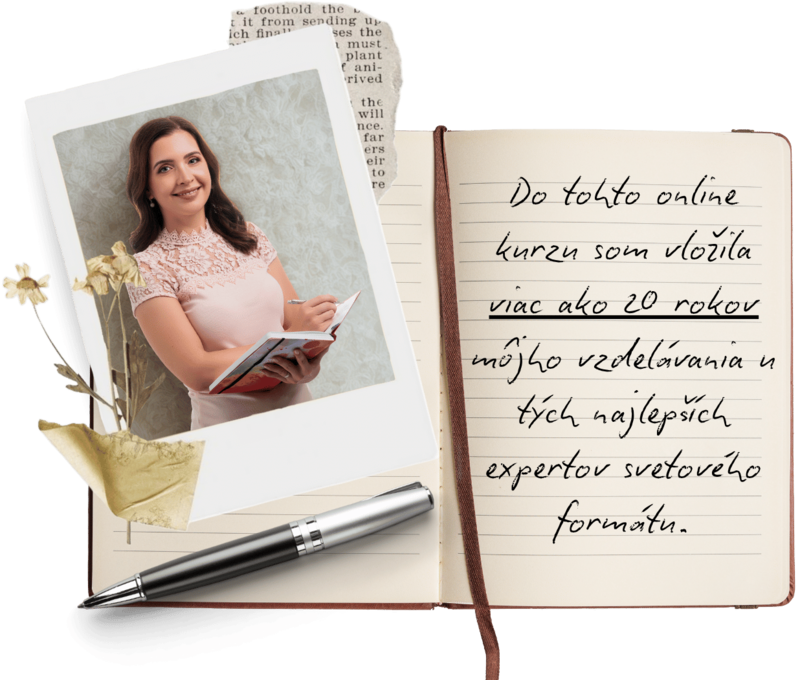 a foothold the
it from sending up
ses the
must
plant
ani-
erived
the
will
nce.
far
ers
eir
to
re
Do tohto online
kurzu som vložila
viac ako 20 rokov
môjho vzdelávania u
tých najlepších
expertov svetového
formátu.